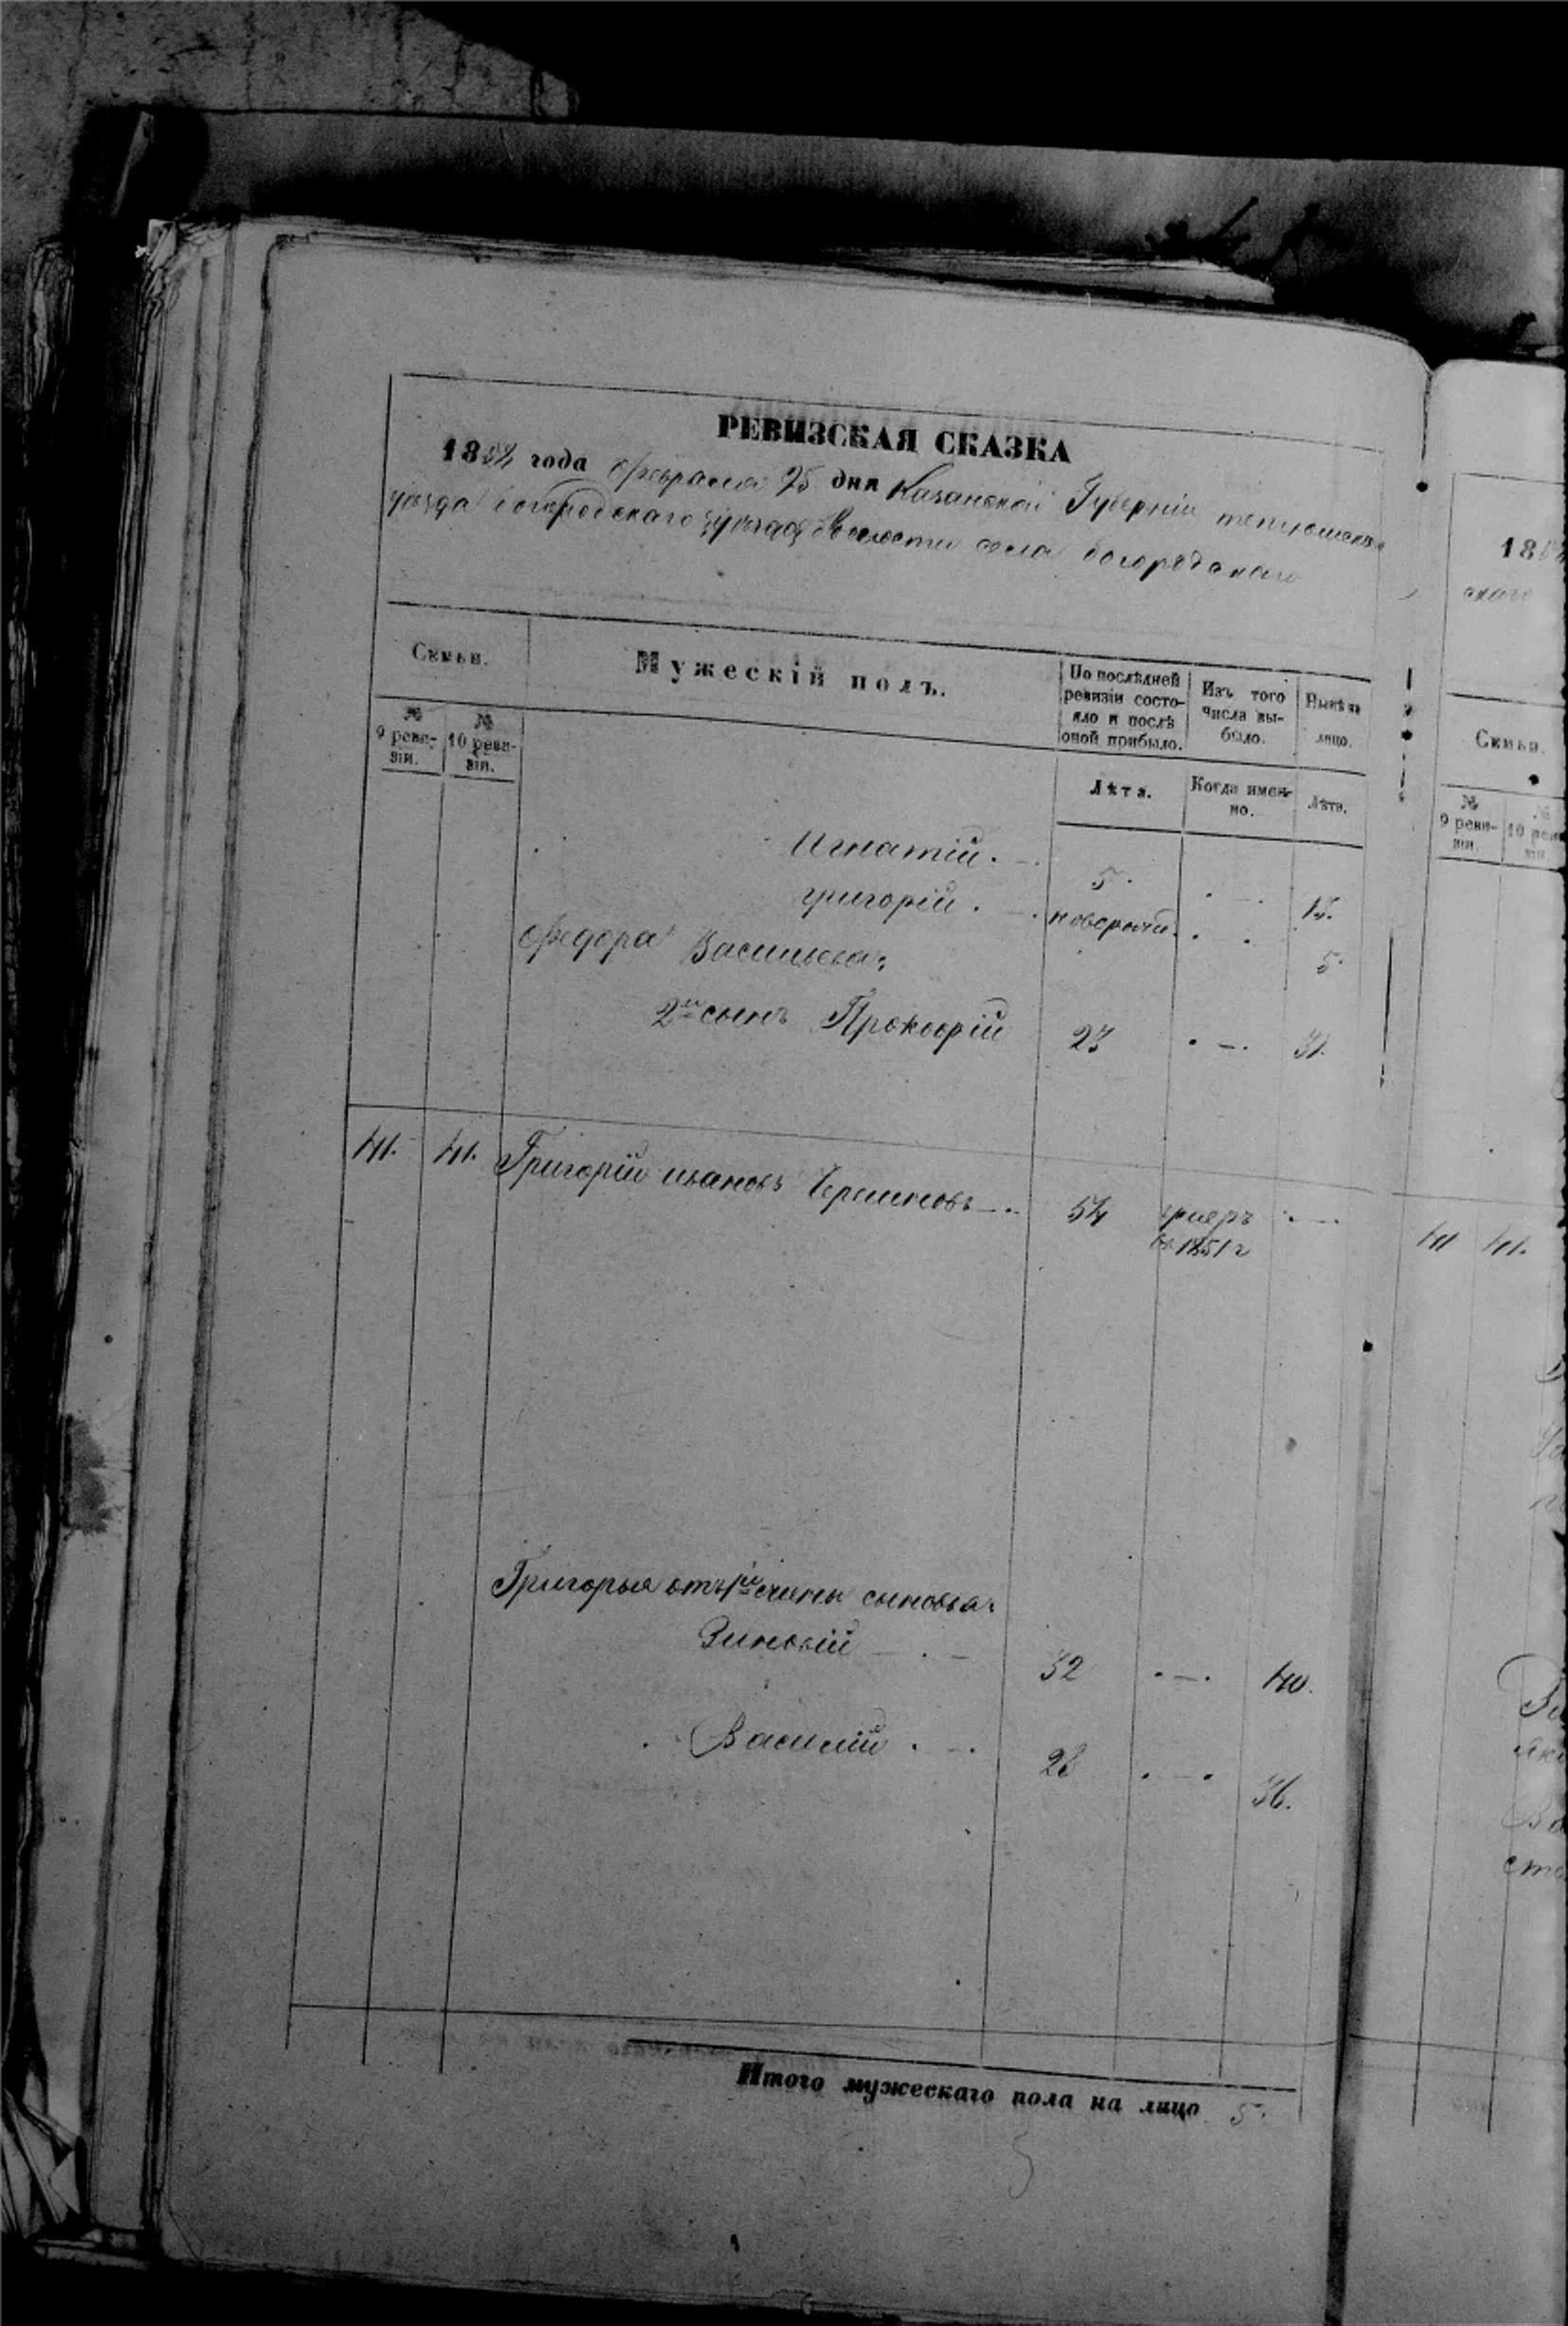 РЕВИЗСКАЯ СКАЗКА
1858 года февраля 25 дня Казанской Губерніи тетюшскаго
уѣзда богородскаго волости села богородскаго
Семьи.
Мужескій полъ.
По послѣдней ревизіи состояло и послѣ оной прибыло.
Изъ того числа выбыло.
Нынѣ на лицо.
№ 9 ревизіи.
№ 10 ревизіи.
Лѣта.
Когда именно.
Лѣта.
Игнатій . — . 5 . . — . 13.
григорій . — . новорожд. . . 5.
Федора Васильева:
2й сынъ Прокофій 23 . — . 31.
41. 41. Григорій ивановъ — . 54 умеръ . —
въ 1851 г
Григорья отъ 1й жены сыновья:
Зиновій — . — 32 . — . 40.
Василій . — . 28 . — . 36.
Итого мужескаго пола на лицо 5.
18
скаго
Семьи.
№ 9 ревизіи.
№ 10
41 41.